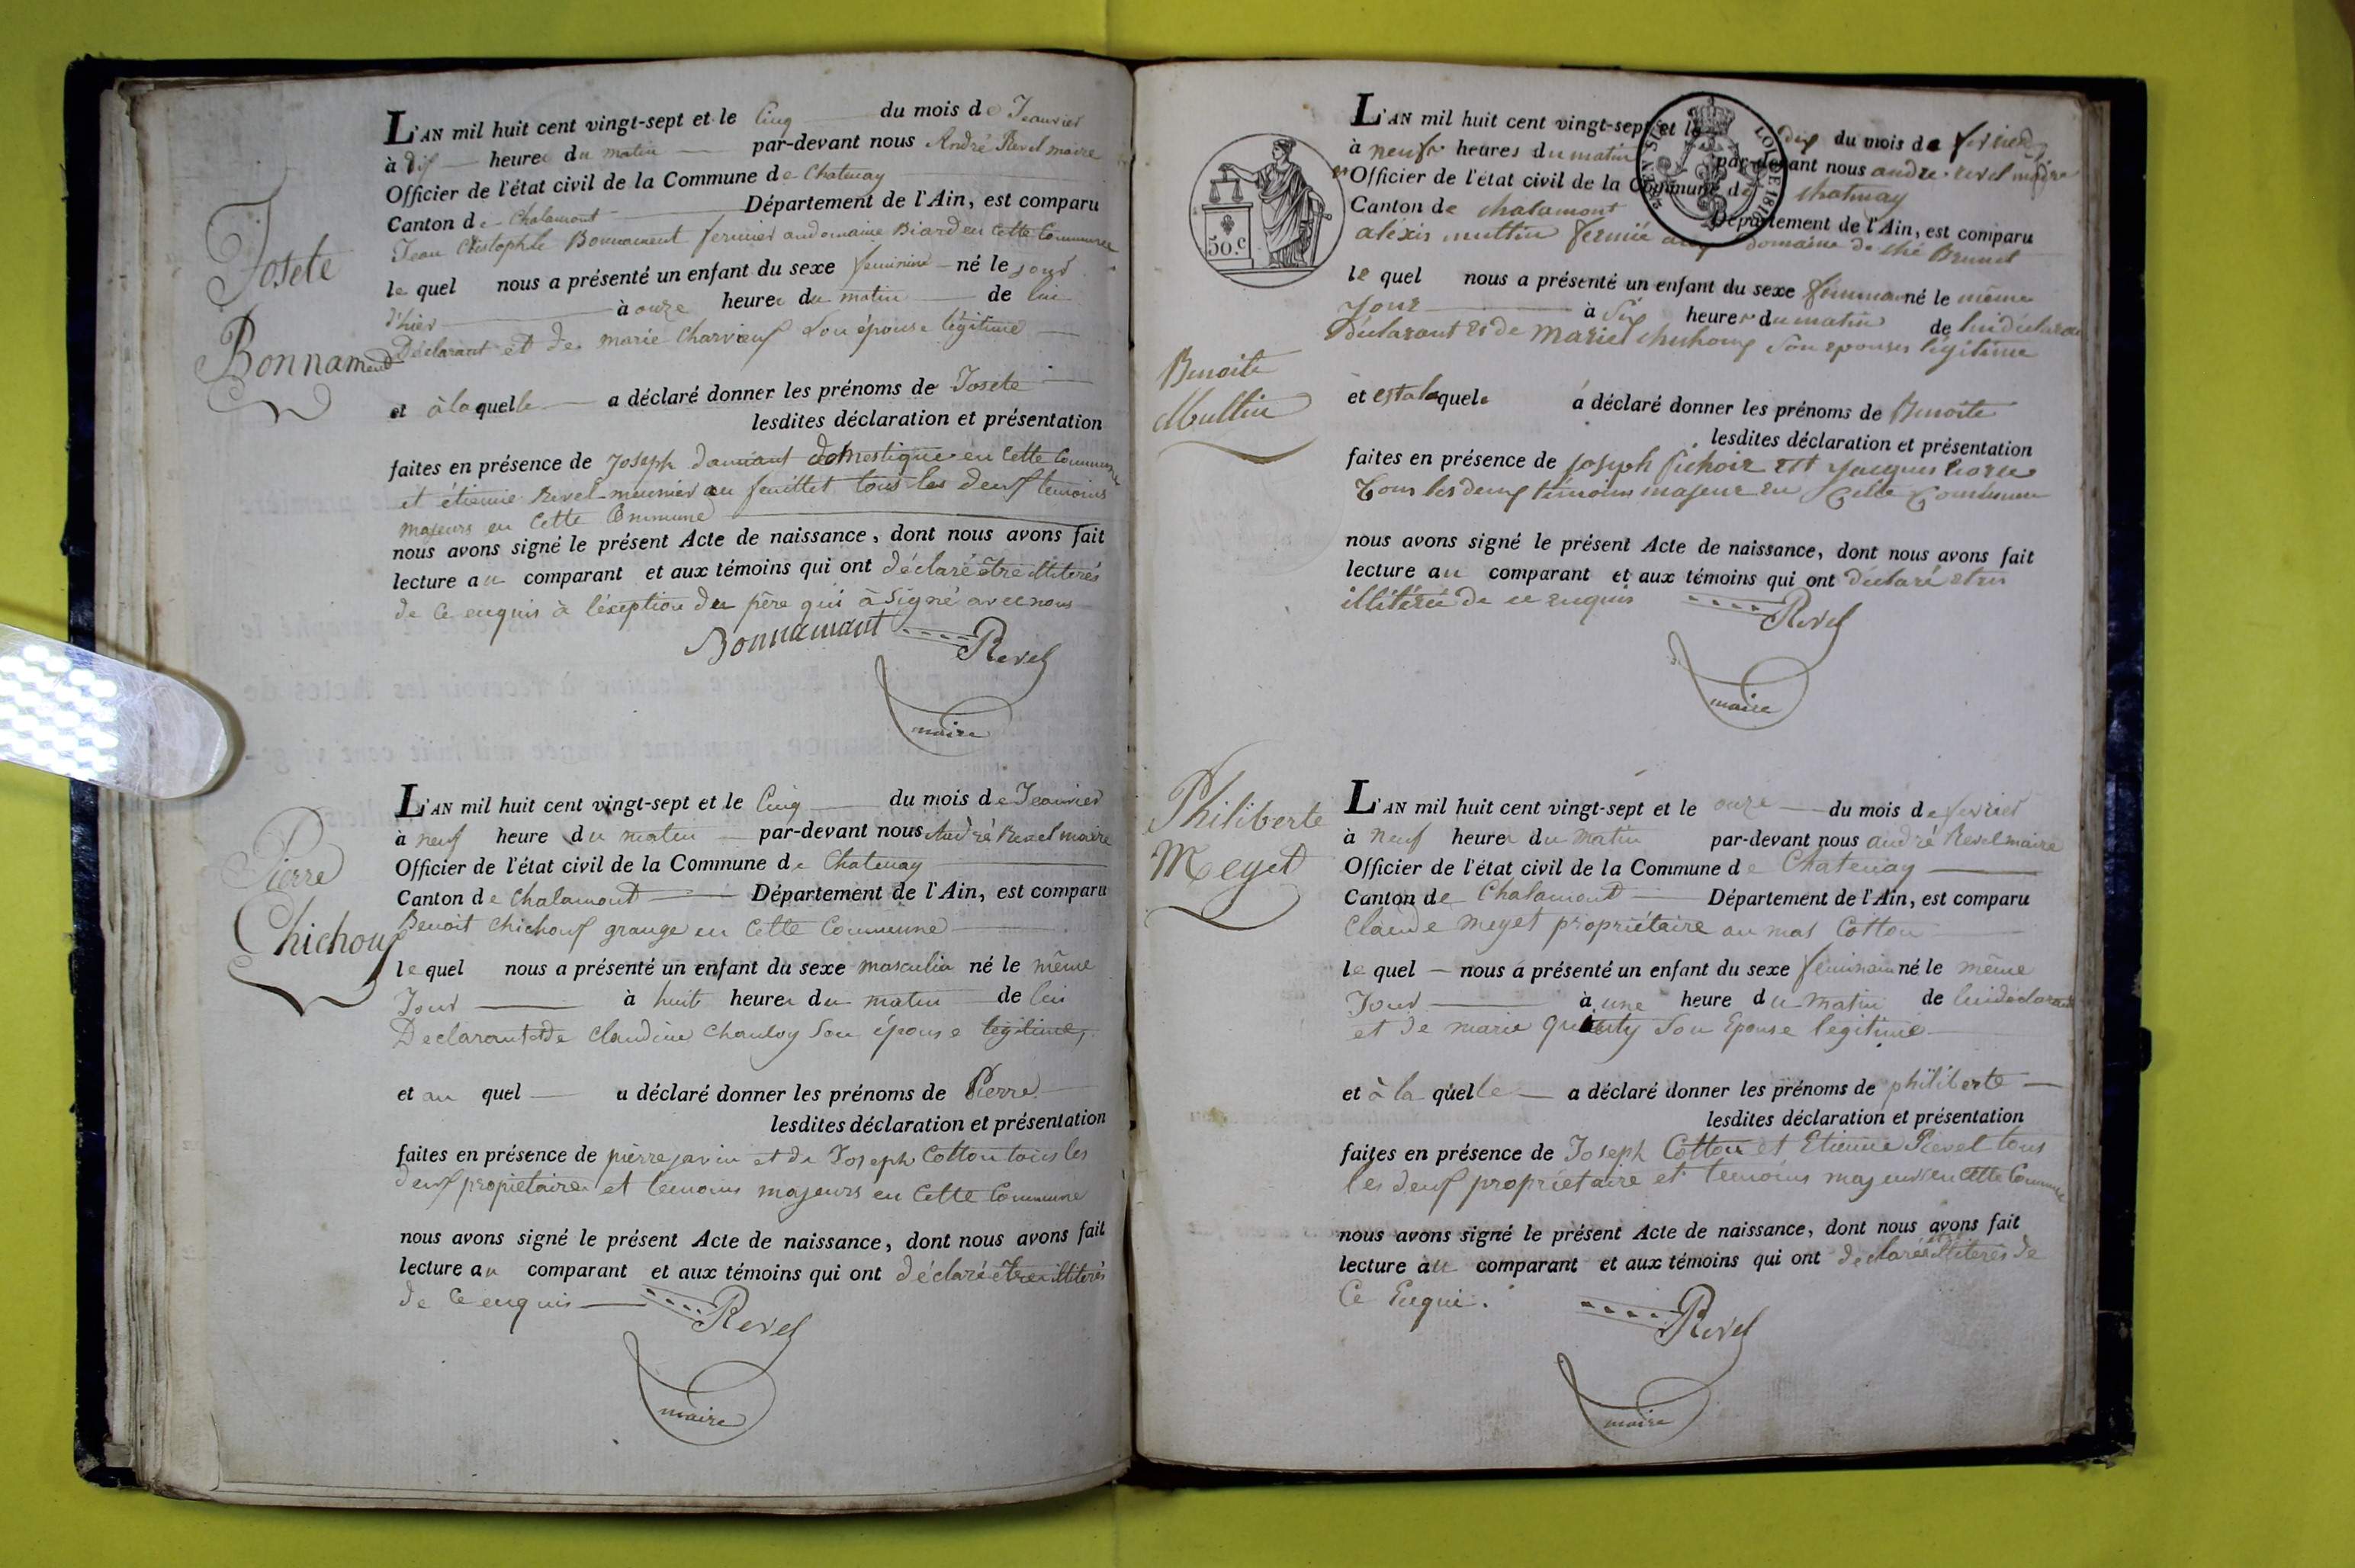 Josete
Bonnamend
L'AN mil huit cent vingt-sept et le Cinq du mois de Jeanvier
à dix heures du matin par-devant nous André Revel maire
Officier de l'état civil de la Commune de Chatenay
Canton de Chalamont Département de l'Ain, est comparu
Jean Cristophle Bonnament fermier au domaine Biard en Cette Commune
le quel nous a présenté un enfant du sexe feminine né le jour
d'hier à onze heures du matin de lui
Déclarant et de marie Charvieux Son épouse légitime
et à la quelle a déclaré donner les prénoms de Josete
lesdites déclaration et présentation
faites en présence de Joseph damians domestique en Cette Commune
et étienne Revel meunier au feuillet tous les deux temoins
majeurs en Cette Commune
nous avons signé le présent Acte de naissance, dont nous avons fait
lecture au comparant et aux témoins qui ont déclaré être illiterés
de Ce enquis à l'éxeption du père qui à Signé avec nous
Bonnamant Revel
maire
Pierre
Chichoux
L'AN mil huit cent vingt-sept et le Cinq du mois de Jeanvier
à neuf heure du matin par-devant nous André Revel maire
Officier de l'état civil de la Commune de Chatenay
Canton de Chalamont Département de l'Ain, est comparu
Benoit Chichoux granger en Cette Commune
le quel nous a présenté un enfant du sexe masculin né le même
Jour à huit heures du matin de lui
Declarant et de Claudine Chanloy Son épouse legitime,
et au quel a déclaré donner les prénoms de Pierre
lesdites déclaration et présentation
faites en présence de pierre javin et de Joseph Cotton tous les
deux propietaires et temoins majeurs en Cette Commune
nous avons signé le présent Acte de naissance, dont nous avons fait
lecture au comparant et aux témoins qui ont déclaré être illiterés
de Ce enquis
Revel
maire
50.c
LOI DE 1816
Benoite
Muttin
L'AN mil huit cent vingt-sept et le dix du mois de fevrier
à neufr heures du matin par-devant nous andre revel maire
Officier de l'état civil de la Commune de Chatenay
Canton de chalamont Département de l'Ain, est comparu
aléxis muttin fermié domaine de ché Brunet
le quel nous a présenté un enfant du sexe né le même
Jour à Six heures du matin de lui
déclarant et de Marie Son epouses légitime
et est à la quele a déclaré donner les prénoms de Benoite
lesdites déclaration et présentation
faites en présence de joseph et jacques
tous les deux témoins majeur en Cette Commune
nous avons signé le présent Acte de naissance, dont nous avons fait
lecture au comparant et aux témoins qui ont déclaré etre
illitéré de ce enquis
Revel
maire
Philiberte
Meyet
L'AN mil huit cent vingt-sept et le onze du mois de fevrier
à neuf heures du matin par-devant nous andré Revel maire
Officier de l'état civil de la Commune de Chatenay
Canton de Chalamont Département de l'Ain, est comparu
Claude meyet propriétaire au mas Cotton
le quel nous a présenté un enfant du sexe feminain né le même
Jour à une heure du matin de lui déclarant
et de marie Son Epouse legitime
et à la quelle a déclaré donner les prénoms de philiberte
lesdites déclaration et présentation
faites en présence de Joseph Cotton et Etienne Revel tous
les deux propriétaire et temoins majeurs en Cette Commune
nous avons signé le présent Acte de naissance, dont nous avons fait
lecture au comparant et aux témoins qui ont déclarés illiterés de
Ce Enqui.
Revel
maire